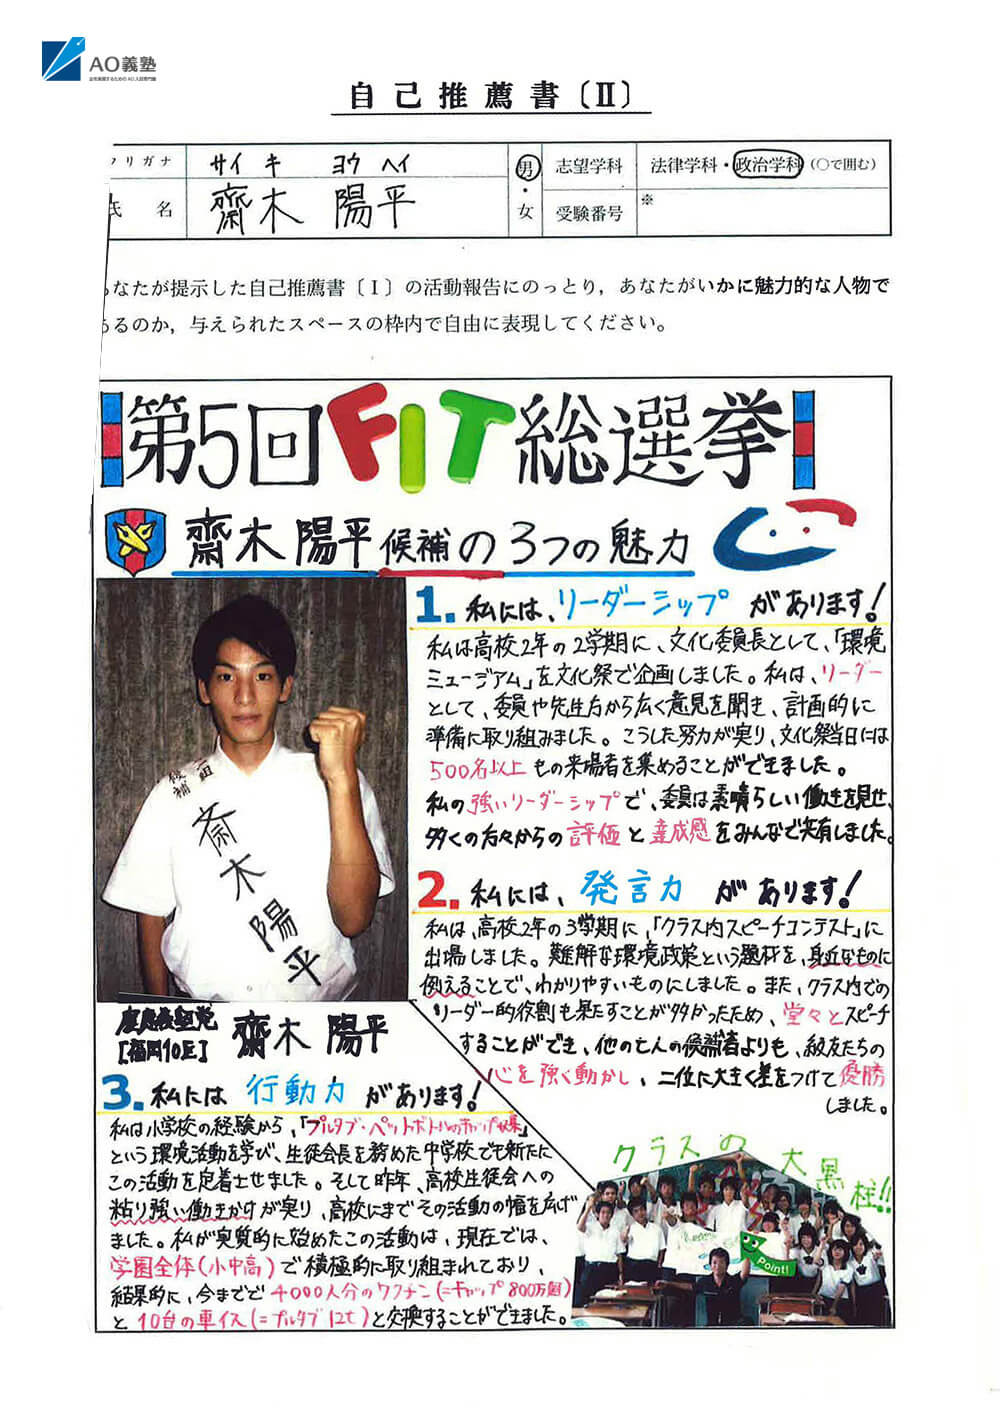 AO義塾
自己推薦書〔Ⅱ〕
フリガナ サイキ ヨウヘイ
氏名 齋木 陽平
男・女
志望学科 法律学科・政治学科(○で囲む)
受験番号 ※
あなたが提示した自己推薦書〔Ⅰ〕の活動報告にのっとり,あなたがいかに魅力的な人物で
あるのか,与えられたスペースの枠内で自由に表現してください。
第5回FIT総選挙
齋木陽平候補の3つの魅力
1.私には、リーダーシップがあります!
私は高校2年の2学期に、文化委員長として、「環境
ミュージアム」を文化祭で企画しました。私は、リーダー
として、委員や先生方から広く意見を聞き、計画的に
準備に取り組みました。こうした努力が実り、文化祭当日には
500名以上もの来場者を集めることができました。
私の強いリーダーシップで、委員は素晴らしい働きを見せ、
多くの方々からの評価と達成感をみんなで共有しました。
2.私には、発言力があります!
私は、高校2年の3学期に、「クラス内スピーチコンテスト」に
出場しました。難解な環境政策という題材を、身近なものに
例えることで、わかりやすいものにしました。また、クラス内での
リーダー的役割も果たすことが多かったため、堂々とスピーチ
することができ、他の七人の候補者よりも、級友たちの
心を強く動かし、二位に大きく差をつけて優勝
しました。
候補
齋木陽平
慶應義塾党
[福岡10区]
齋木 陽平
3.私には行動力があります!
私は小学校の経験から、「プルタブ・ペットボトルのキャップ収集」
という環境活動を学び、生徒会長を務めた中学校でも新たに
この活動を定着させました。そして昨年、高校生徒会への
粘り強い働きかけが実り、高校にまでその活動の幅を広げ
ました。私が実質的に始めたこの活動は、現在では、
学園全体(小中高)で積極的に取り組まれており、
結果的に、今までで4000人分のワクチン(=キャップ800万個)
と10台の車イス(=プルタブ12t)と交換することができました。
クラスの大黒柱!!
Point!